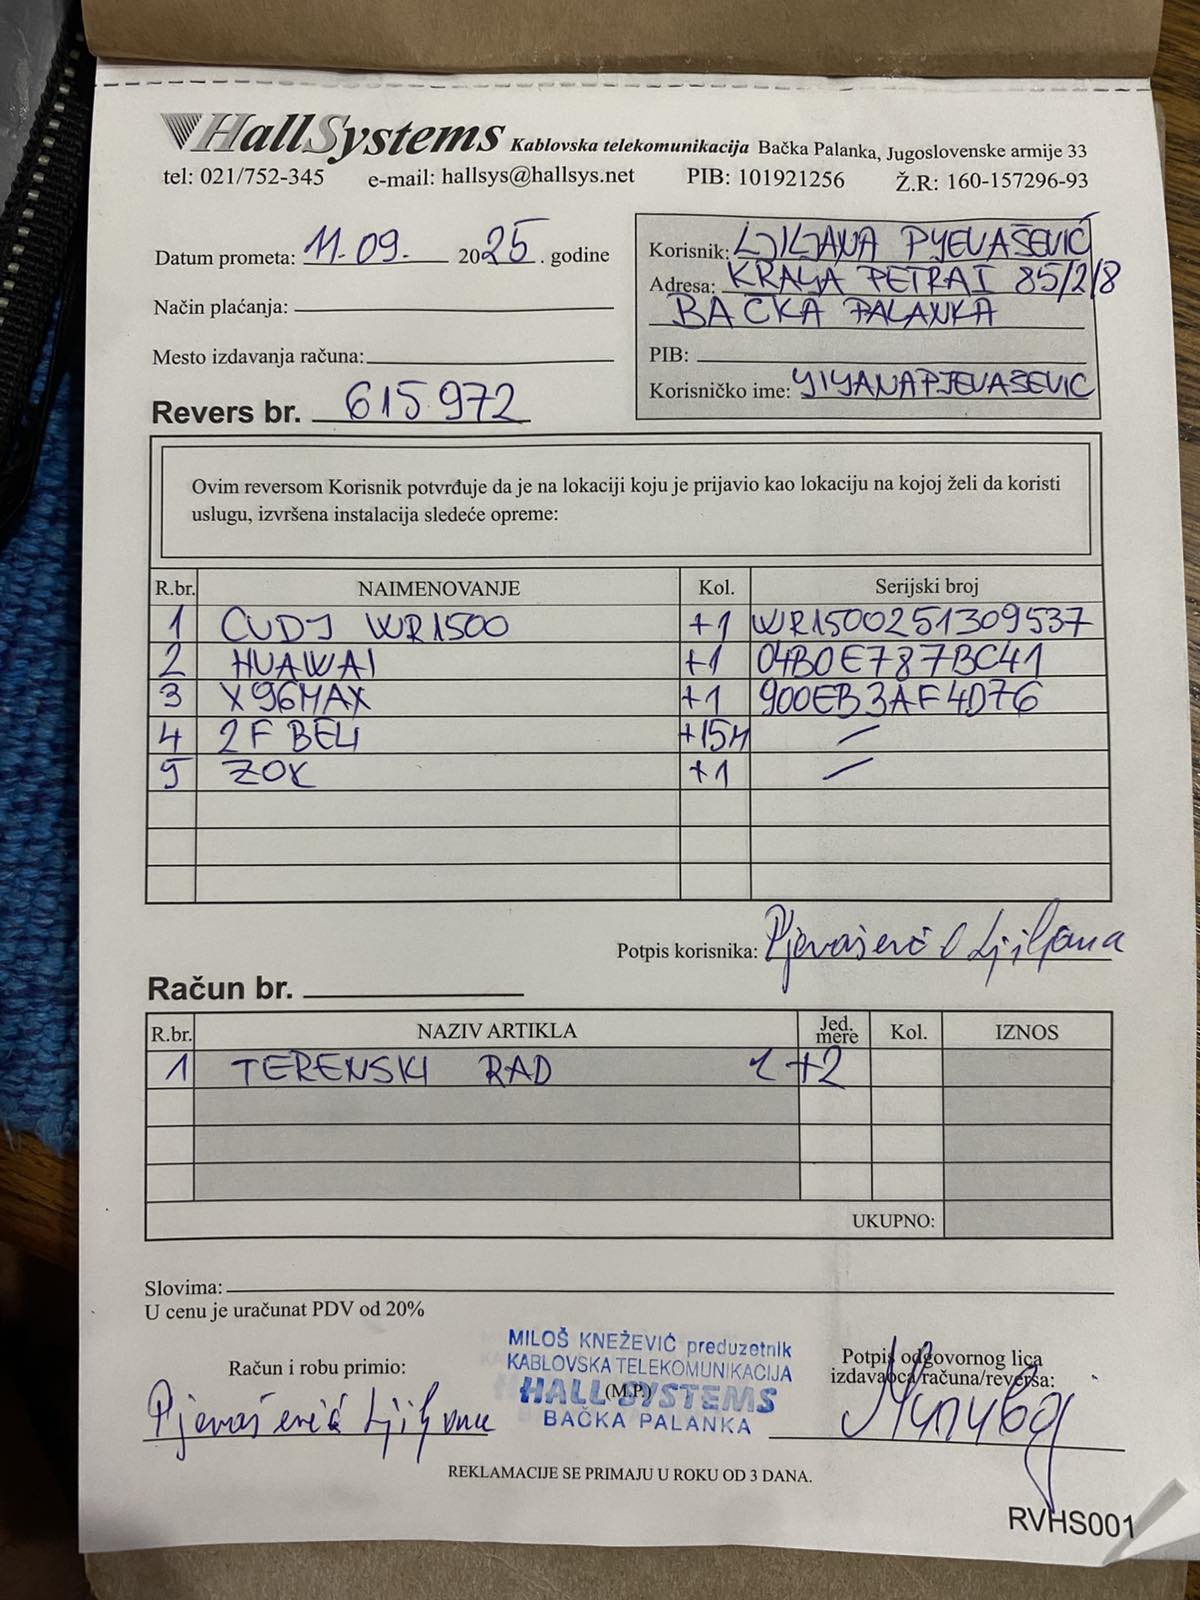 HallSystems Kablovska telekomunikacija Bačka Palanka, Jugoslovenske armije 33
tel: 021/752-345 e-mail: hallsys@hallsys.net PIB: 101921256 Ž.R: 160-157296-93
Datum prometa: 11.09. 2025. godine
Način plaćanja:
Mesto izdavanja računa:
Revers br. 615972
Korisnik: LJILJANA PJEVAŠEVIĆ
Adresa: KRALJA PETRA I 85/2/8
BAČKA PALANKA
PIB:
Korisničko ime: LJILJANAPJEVASEVIC
Ovim reversom Korisnik potvrđuje da je na lokaciji koju je prijavio kao lokaciju na kojoj želi da koristi
uslugu, izvršena instalacija sledeće opreme:
R.br. NAIMENOVANJE Kol. Serijski broj
1 CUDJ WR1500 +1 WR1500251309537
2 HUAWAI +1 04B0E787BC41
3 X96MAX +1 900EB3AF4D76
4 2F BELI +15M /
5 ZOK +1 /
Potpis korisnika: Pjevašević Ljiljana
Račun br.
R.br. NAZIV ARTIKLA Jed. mere Kol. IZNOS
1 TERENSKI RAD +2
UKUPNO:
Slovima:
U cenu je uračunat PDV od 20%
Račun i robu primio:
Pjevašević Ljiljana
MILOŠ KNEŽEVIĆ preduzetnik
KABLOVSKA TELEKOMUNIKACIJA
HALL SYSTEMS
(M.P.)
BAČKA PALANKA
Potpis odgovornog lica
izdavaoca računa/reversa:
REKLAMACIJE SE PRIMAJU U ROKU OD 3 DANA.
RVHS001